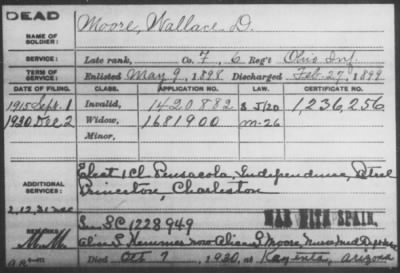 DEAD
Moore, Wallace D.
NAME OF SOLDIER:
SERVICE: Late rank, Co. F, 6 Reg't Ohio Inf.
TERM OF SERVICE: Enlisted May 9, 1898 Discharged Feb. 27, 1899
DATE OF FILING. CLASS. APPLICATION NO. LAW. CERTIFICATE NO.
1915 Sept. 1 Invalid, 1420882 1,236,256
1930 Dec 2 Widow, 1681900 M-26
Minor,
Elect 1 Cl Pensacola, Independence,
ADDITIONAL SERVICES: Princeton, Charleston
SC 1228949 WAR WITH SPAIN
REMARKS: now Alice S Moore,
Died Oct 7, 1930, at Kayenta, Arizona